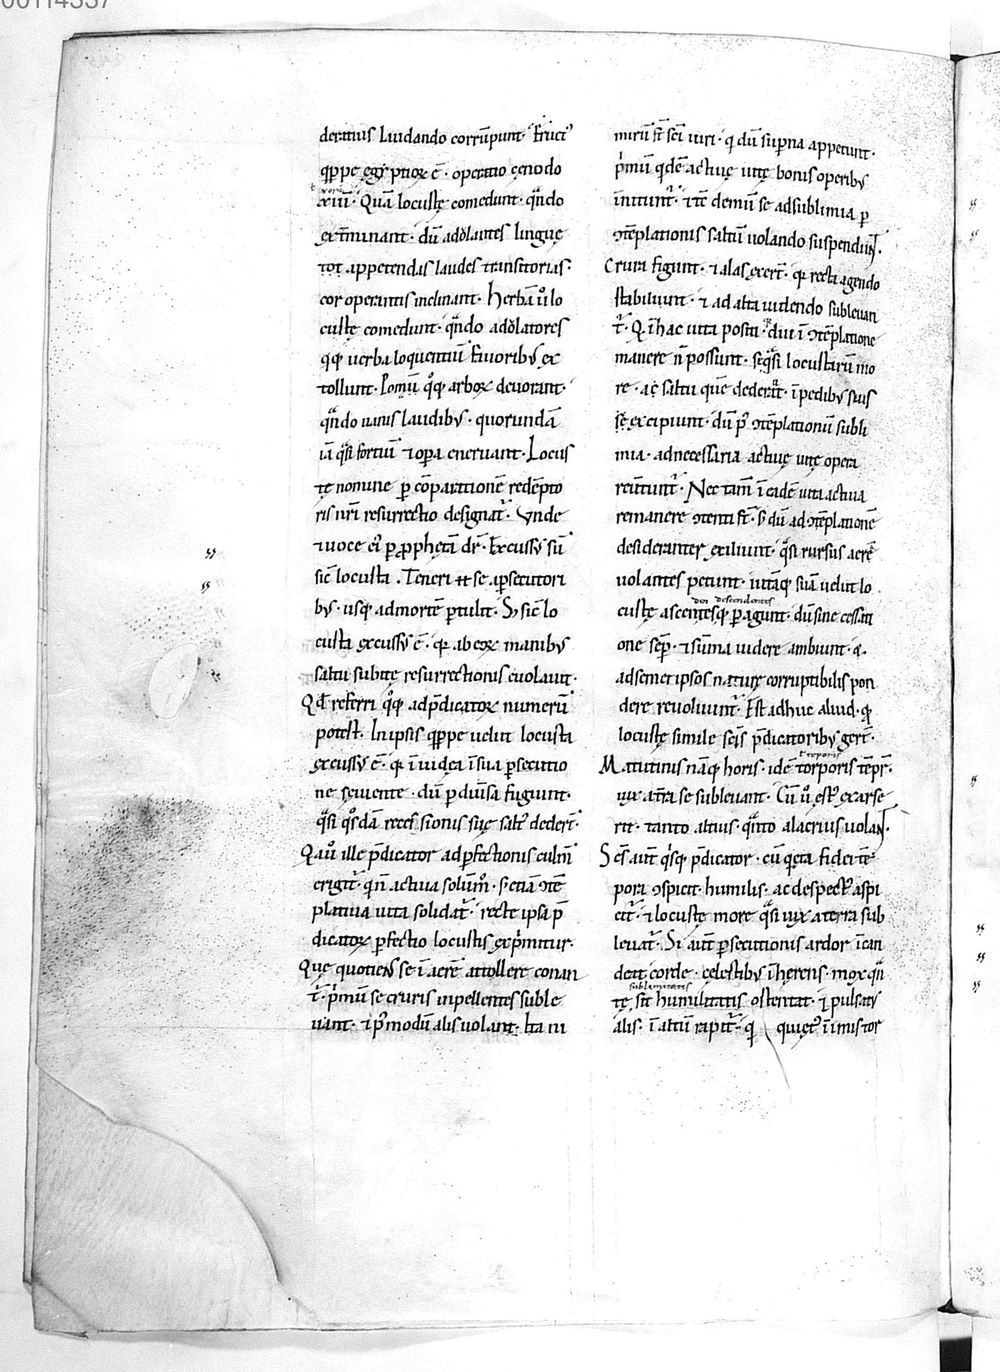 deratius laudando corrūpunt. Fruct᷒
q̇ppe egẏptioꝝ ē. operatio cenodo
xiaꝝ. Quā locustę comedunt. qn̄do
ext̄minant. dū adolantes linguę
tot appetendas laudes transitorias.
cor operantis inclinant. Herbā ů lo
custę comedunt. qn̄do adolatores
qq; uerba loquentiū fauorib; ex
tollunt. Pomū qͦq; arboꝝ deuorant.
qn̄do uanis laudib;. quorundā
iā qͣsi fortiū ⁊ oꝑa eneruant. Locus
tę nomine ꝑ cōparationē redēpto
ris nr̄i resurrectio designat᷒. Vnde
⁊ uoce ei᷒ ꝑ ꝓphetā dr̄. Excussus sū
sic̄ locusta. Teneri ēt se a ꝑsecutori
b;. usq; ad mortē ꝑtulit. S; sic̄ lo
custa excussus ē. q; ab eoꝝ manib;
saltu subitę resurrectionis euolauit.
Qd̄ referri qͦq; ad p̄dicatoꝝ numerū
potest. In ipsis q̇ppe uelut locusta
excussus ē. q; ī iudea īsua ꝑsecutio
ne seuiente. dū ꝑ diuisa fugiunt.
qͣsi qͦsdā recessionis suę salt᷒ dedert̄.
Q aū ille p̄dicator ad ꝑfectionis culm̄
erigit᷒. quē actiua solūm̊. s; etiā ↄtē
platiua uita solidat᷒. recte ipsa p̄
dicatoꝝ ꝑfectio locustis exp̄mitur.
Que quotiens se ī aerē attollere conan
t᷒. p̍mū se cruris inpellentes suble
uant. ⁊ p᷒modū alis uolant. Ita ni
mirū st̄ sc̄i uiri. q̇ dū suꝑna appetunt.
p̍mū qͥdē actiuę uitę bonis operib;
initunt᷒. ⁊ tc̄ demū se ad sublimia ꝑ
ↄtēplationis saltū uolando suspendunt.
Crura figunt. ⁊ alas exert̄. q; recta agendo
stabiliunt᷒. ⁊ ad alta uidendo subleuan
t᷒. Q; ī hac uita positi. diu ī ↄtēplatione
manere n̄ possunt. s; qͣsi locustarū mo
re. ac̄ saltu quē dederāt. ī pedib; suis
se excipiunt. dū p᷒ ↄtēplationū subli
mia. ad necessaria actiuę uitę opera
reūtunt᷒. Nec tam̄ ī eadē uita actiua
remanere ↄtenti st̄. s; dū ad ↄtēplationē
desideranter exiliunt. qͣsi rursus aerē
uolantes petunt. uitāq; suā uelut lo
custę ascendentes descendentesq; ꝑagunt. dū sine cessati
one sēꝑ. ⁊ sūma uidere ambiunt. ⁊
ad semetipsos naturę corruptibilis pon
dere reuoluunt᷒. Est adhuc aliud. qd̄
locustę simile sc̄is p̄dicatorib; gert̄.
Matutinis nāq; horis. idē torporis tēpr̄.
uix a t̄ra se subleuant. Cū ů est᷒ exarse
rit. tanto altius. qͣnto alacrius uolant.
Sc̄s aūt qͥsq; p̄dicator. cū qͥeta fidei tē
pora ↄspicit. humilis. ac despect᷒ aspi
cit᷒. ⁊ locustę more qͣsi uix a terra sub
leuat᷒. Si aūt ꝑsecutionis ardor īcan
deat corde. celestib; īherens. mox qn̄
tę sit humilitatis ostentat. ⁊ pulsatis
alis. ī altū rapit᷒. q̇ quiet᷒ ī imis tor